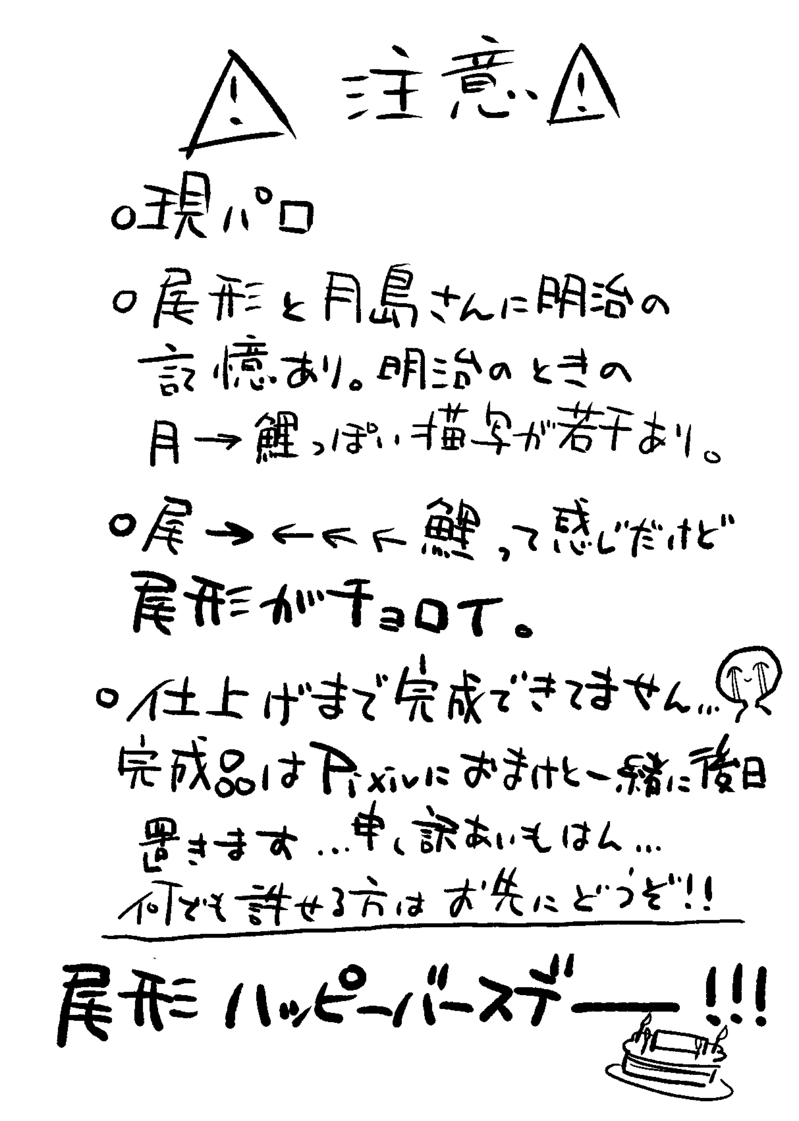 ⚠ 注意 ⚠
○現パロ
○尾形と月島さんに明治の
記憶あり。明治のときの
月→鯉っぽい描写が若干あり。
○尾→←←←鯉って感じだけど
尾形がチョロイ。
○仕上げまで完成できてません…
完成品はPixivにおまけと一緒に後日
置きます…申し訳あいもはん…
何でも許せる方はお先にどうぞ!!
尾形ハッピーバースデー!!!